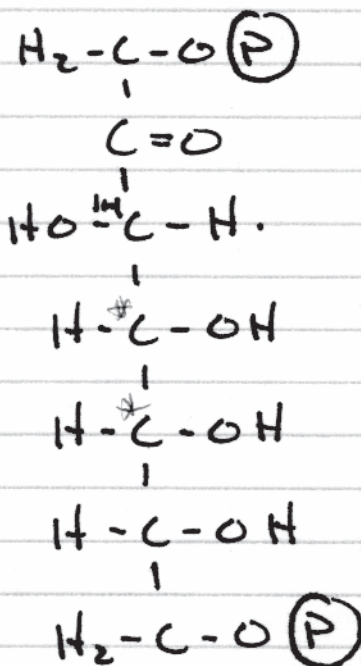 H₂-C-O Ⓟ
C=O
HO-¹⁴C-H.
H-*C-OH
H-*C-OH
H-C-OH
H₂-C-O Ⓟ